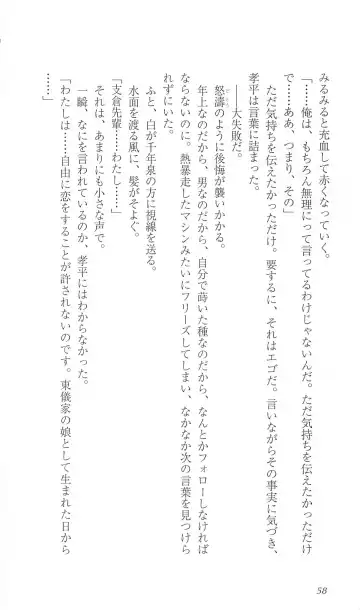 みるみると充血して赤くなっていく。
「……俺は、もちろん無理にって言ってるわけじゃないんだ。ただ気持ちを伝えたかっただけ
で……ああ、つまり、その」
ただ気持ちを伝えたかっただけ。要するに、それはエゴだ。言いながらその事実に気づき、
孝平は言葉に詰まった。
――大失敗だ。
怒濤のように後悔が襲いかかる。
年上なのだから、男なのだから、自分で蒔いた種なのだから、なんとかフォローしなければ
ならないのに。熱暴走したマシンみたいにフリーズしてしまい、なかなか次の言葉を見つけら
れずにいた。
ふと、白が千年泉の方に視線を送る。
水面を渡る風に、髪がそよぐ。
「支倉先輩……わたし……」
それは、あまりにも小さな声で。
一瞬、なにを言われているのか、孝平にはわからなかった。
「わたしは……自由に恋をすることが許されないのです。東儀家の娘として生まれた日から
……」
58